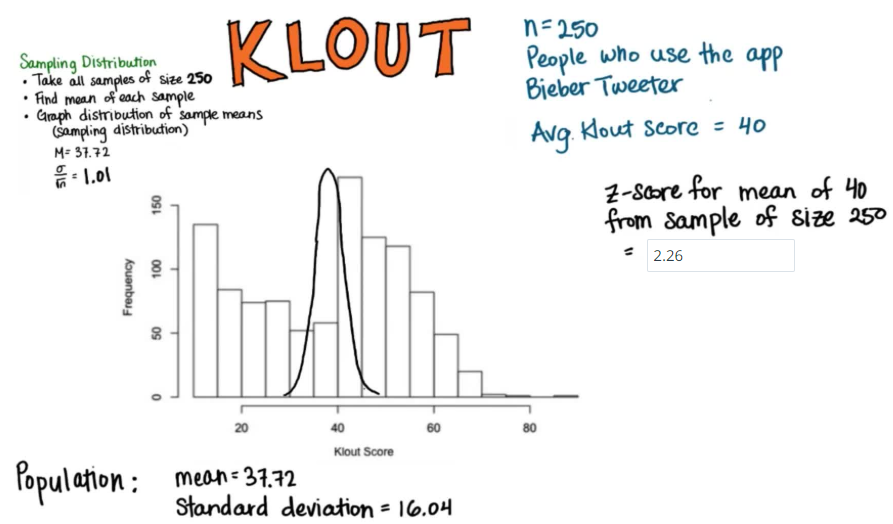 KLOUT
Sampling Distribution
• Take all samples of size 250
• Find mean of each sample
• Graph distribution of sample means
(sampling distribution)
M = 37.72
σ/√n = 1.01
n = 250
People who use the app
Bieber Tweeter
Avg. Klout score = 40
z-score for mean of 40
from sample of size 250
= 2.26
Frequency
150
100
50
0
20 40 60 80
Klout Score
Population: mean = 37.72
Standard deviation = 16.04